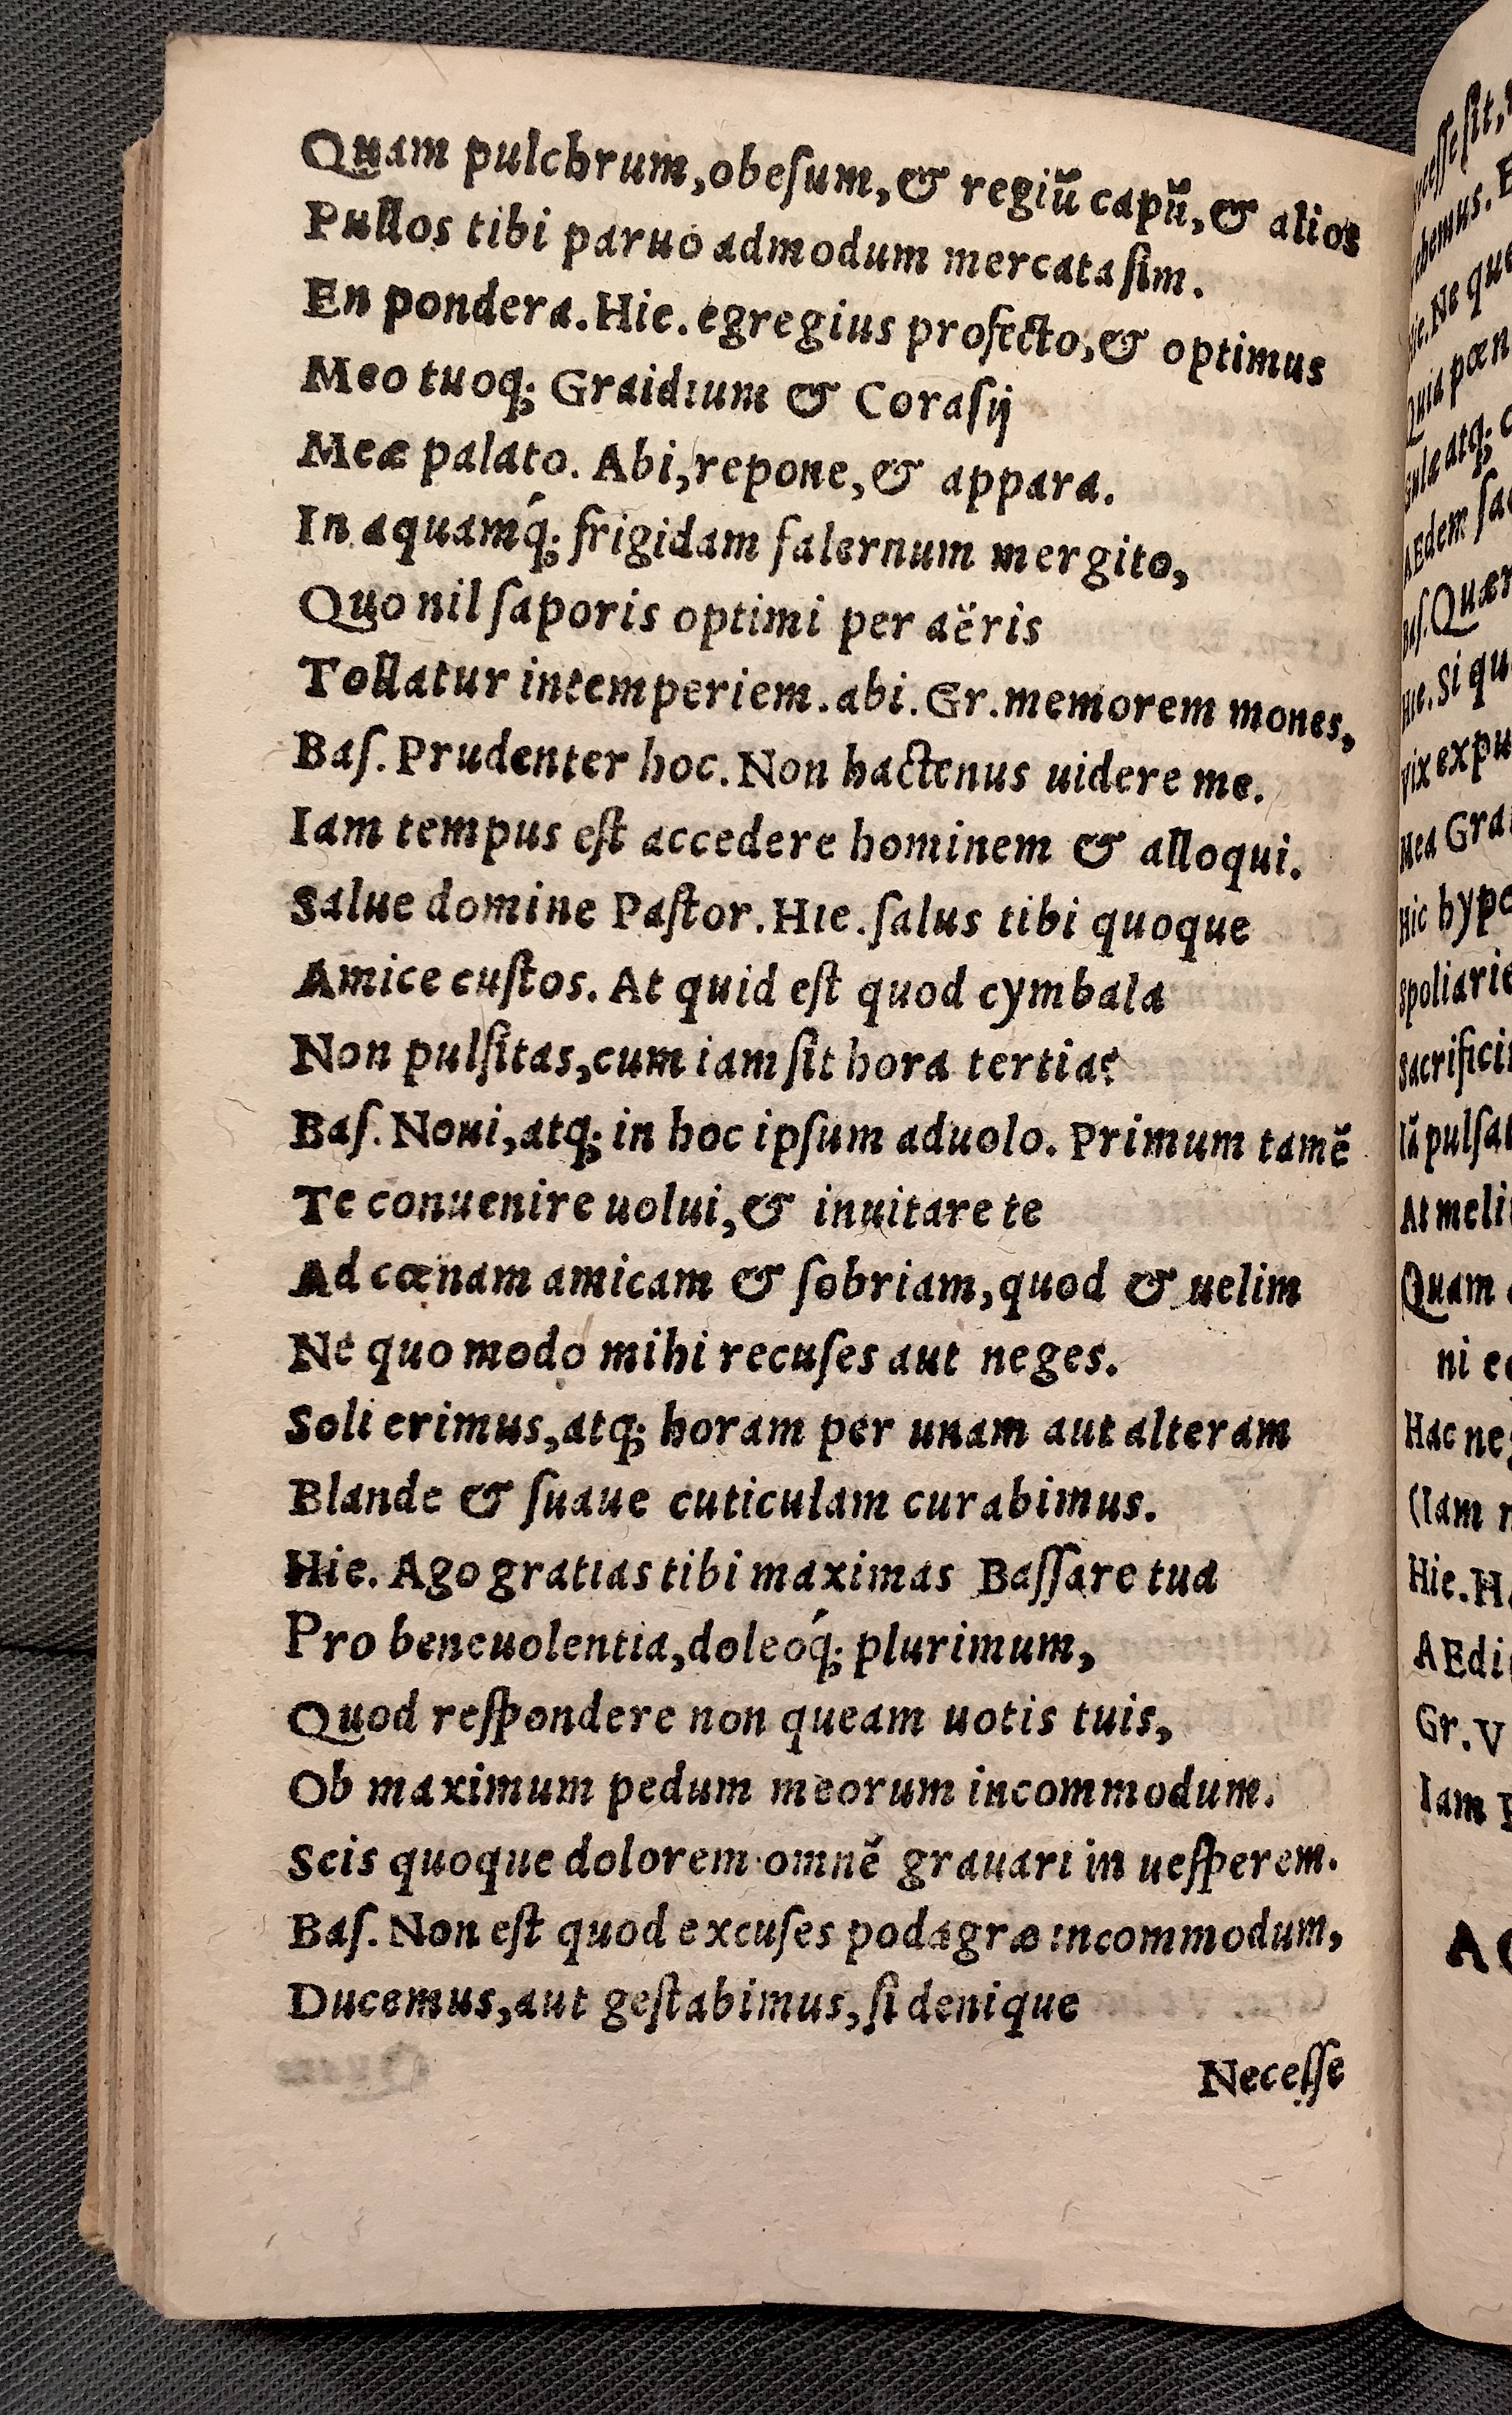 Quam pulchrum, obeſum, & regiũ capũ, & alios
Pullos tibi paruo admodum mercata ſim.
En pondera. Hie. egregius profecto, & optimus
Meo tuoq; Graidium & Coraſij
Meæ palato. Abi, repone, & appara.
In aquamq́; frigidam falernum mergito,
Quo nil ſaporis optimi per aëris
Tollatur intemperiem. abi. Gr. memorem mones,
Baſ. Prudenter hoc. Non hactenus uidere me.
Iam tempus eſt accedere hominem & alloqui.
Salue domine Paſtor. Hie. ſalus tibi quoque
Amice cuſtos. At quid eſt quod cymbala
Non pulſitas, cum iam ſit hora tertia?
Baſ. Noui, atq; in hoc ipſum aduolo. Primum tamẽ
Te conuenire uolui, & inuitare te
Ad cœnam amicam & ſobriam, quod & uelim
Ne quo modo mihi recuſes aut neges.
Soli erimus, atq; horam per unam aut alteram
Blande & ſuaue cuticulam curabimus.
Hie. Ago gratias tibi maximas Baſſare tua
Pro beneuolentia, doleoq́; plurimum,
Quod reſpondere non queam uotis tuis,
Ob maximum pedum meorum incommodum.
Scis quoque dolorem omnẽ grauari in ueſperem.
Baſ. Non eſt quod excuſes podagræ incommodum,
Ducemus, aut geſtabimus, ſi denique
Neceſſe
ſit,
hemus.
Hie. Ne que
Quia pœn
Gulæ atq; c
AEdem ſac
Baſ. Quær
Hie. Si qu
Vix expu
Mea Gra
Hic hypo
Spoliarie
Sacrifici
pulſa
At meli
Quam
ni
Hac ne
(Iam
Hie. H
AEdi
Gr. V
Iam